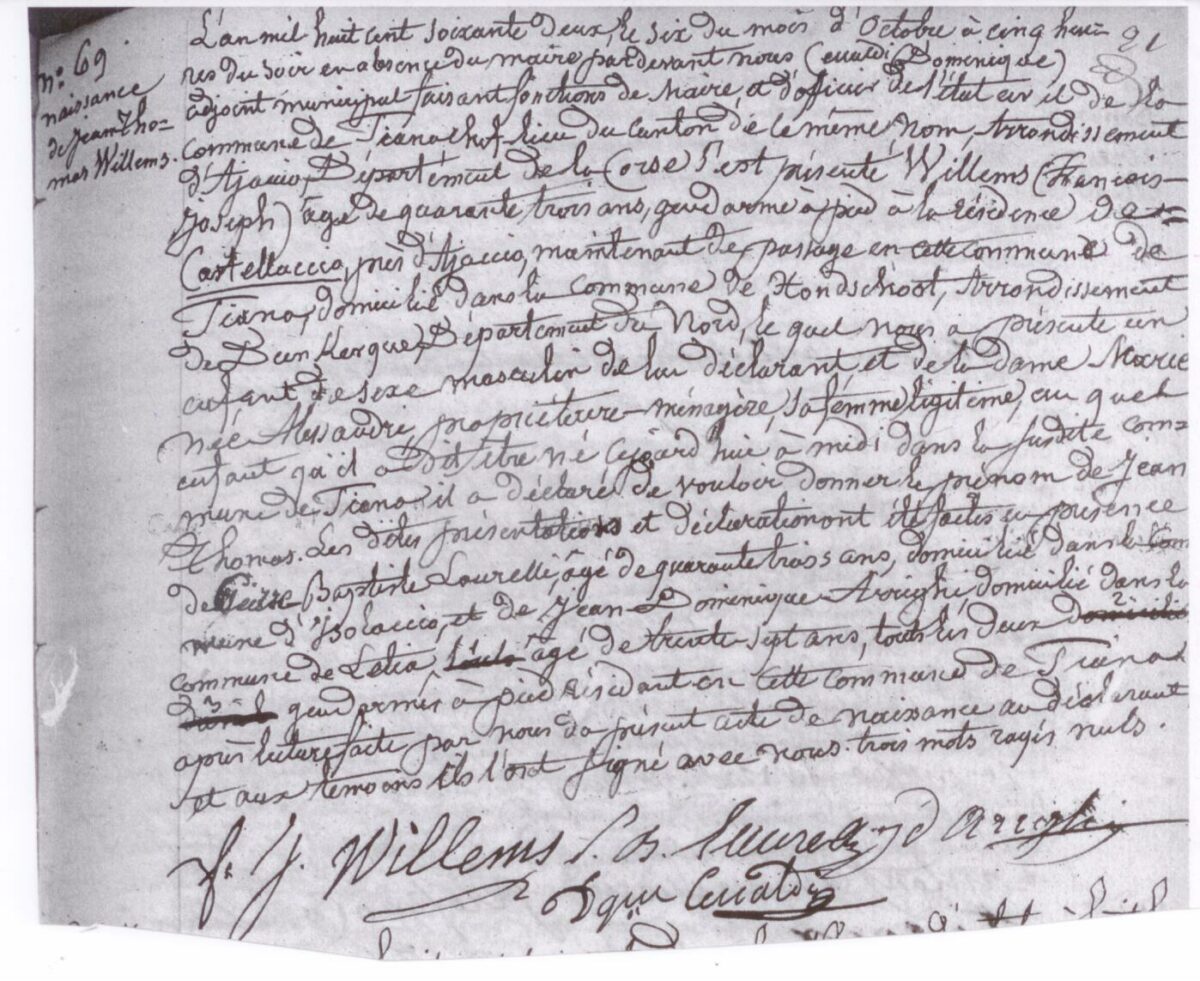 n.o 69
naissance
de Jean Tho=
mas Willems.
21
L'an mil huit cent soixante deux, le six du mois d'Octobre à cinq heu=
res du soir en absence du maire pardevant nous (Ceccaldi Dominique)
adjoint municipal faisant fonctions de Maire, et d'officier de l'état civil de la
commune de Piana chef lieu du canton de le même nom, Arrondissement
d'Ajaccio, Département de la Corse s'est présenté Willems (François
Joseph) âgé de quarante trois ans, gendarme à pied à la résidence de
Castellaccio, près d'Ajaccio, maintenant de passage en cette commune de
Piana, domicilié dans la commune de Hondschoot, Arrondissement
de Dunkerque, Département du Nord, le quel nous a présenté un
enfant de sexe masculin de lui déclarant, et de la Dame Marie
née Alessandri, propriétaire-ménagère, sa femme légitime, au quel
enfant qu'il a dit être né cejourd'hui à midi dans la susdite com=
mune de Piana il a déclaré de vouloir donner le prénom de Jean
Thomas. Les dites présentations et déclaration ont été faites en présence
de Baptiste Laurelli, âgé de quarante trois ans, domicilié dans la com
mune d'Isolaccio, et de Jean-Dominique Arrighi domicilié dans la
commune de Letia, âgé de trente-sept ans, tous les deux domiciliés
gendarmes à pied résidant en cette commune de Piana
après lecture faite par nous du présent acte de naissance au déclarant
et aux temoins ils l'ont signé avec nous. trois mots rayés nuls.
f. J. Willems J. B. Laurelli J d Arrighi
Dque Ceccaldi